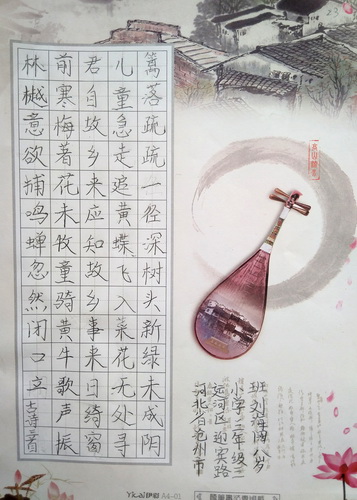 篱落疏疏一径深树头新绿未成阴
儿童急走追黄蝶飞入菜花无处寻
君自故乡来应知故乡事来日绮窗
前寒梅著花未牧童骑黄牛歌声振
林樾意欲捕鸣蝉忽然闭口立古诗三首
河北省沧州市
运河区迎宾路
小学三年级三
班刘海 八岁